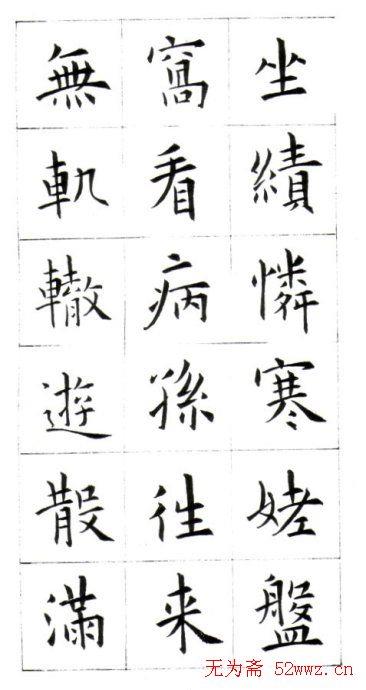 坐績憐寒姥盤
窩看病孫徃来
無軌轍遊散滿
无为斋 52wwz.cn